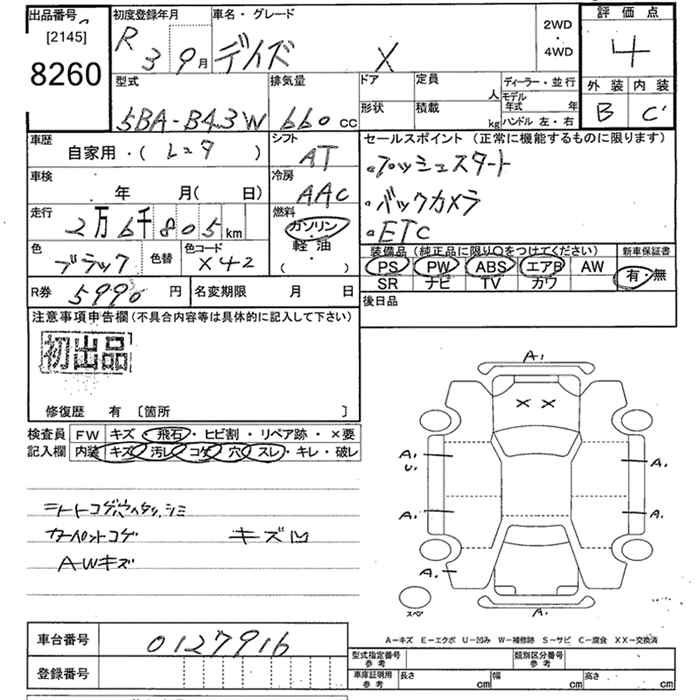 出品番号
[2145]
8260
初度登録年月
R 3 9月
車名・グレード
デイズ X
2WD
・
4WD
評価点
4
型式
5BA-B43W
排気量
660 CC
ドア
形状
定員 人
積載 kg
ディーラー・並行
モデル年式 年
ハンドル 左・右
外装 内装
B C
車歴
自家用・( レンタ )
シフト
AT
車検
年 月( 日)
冷房
AAC
走行
2万6千805km
燃料
ガソリン
軽油
( ・ )
色
ブラック
色替
色コード
X42
R券 5990円
名変期限 月 日
セールスポイント (正常に機能するものに限ります)
・プッシュスタート
・バックカメラ
・ETC
装備品 (純正品に限り○をつけてください)
PS PW ABS エアB AW
SR ナビ TV カワ
新車保証書
有・無
後日品
注意事項申告欄(不具合内容等は具体的に記入して下さい)
初出品
修復歴 有 〔箇所 〕
検査員
記入欄
FW キズ 飛石・ヒビ割・リペア跡・×要
内装 キズ 汚レ・コゲ 穴・スレ・キレ・破レ
シートコゲ穴ヘタリ、シミ
カーペットコゲ キズ凹
AWキズ
A.
X X
A.
U.
A.
A.
A.
A.
A.
スペア
A-キズ E-エクボ U-凹み W-補修跡 S-サビ C-腐食 XX-交換済
車台番号 0127916
登録番号
型式指定番号
参考
類別区分番号
参考
車庫証明用
参考
長さ cm 幅 cm 高さ cm